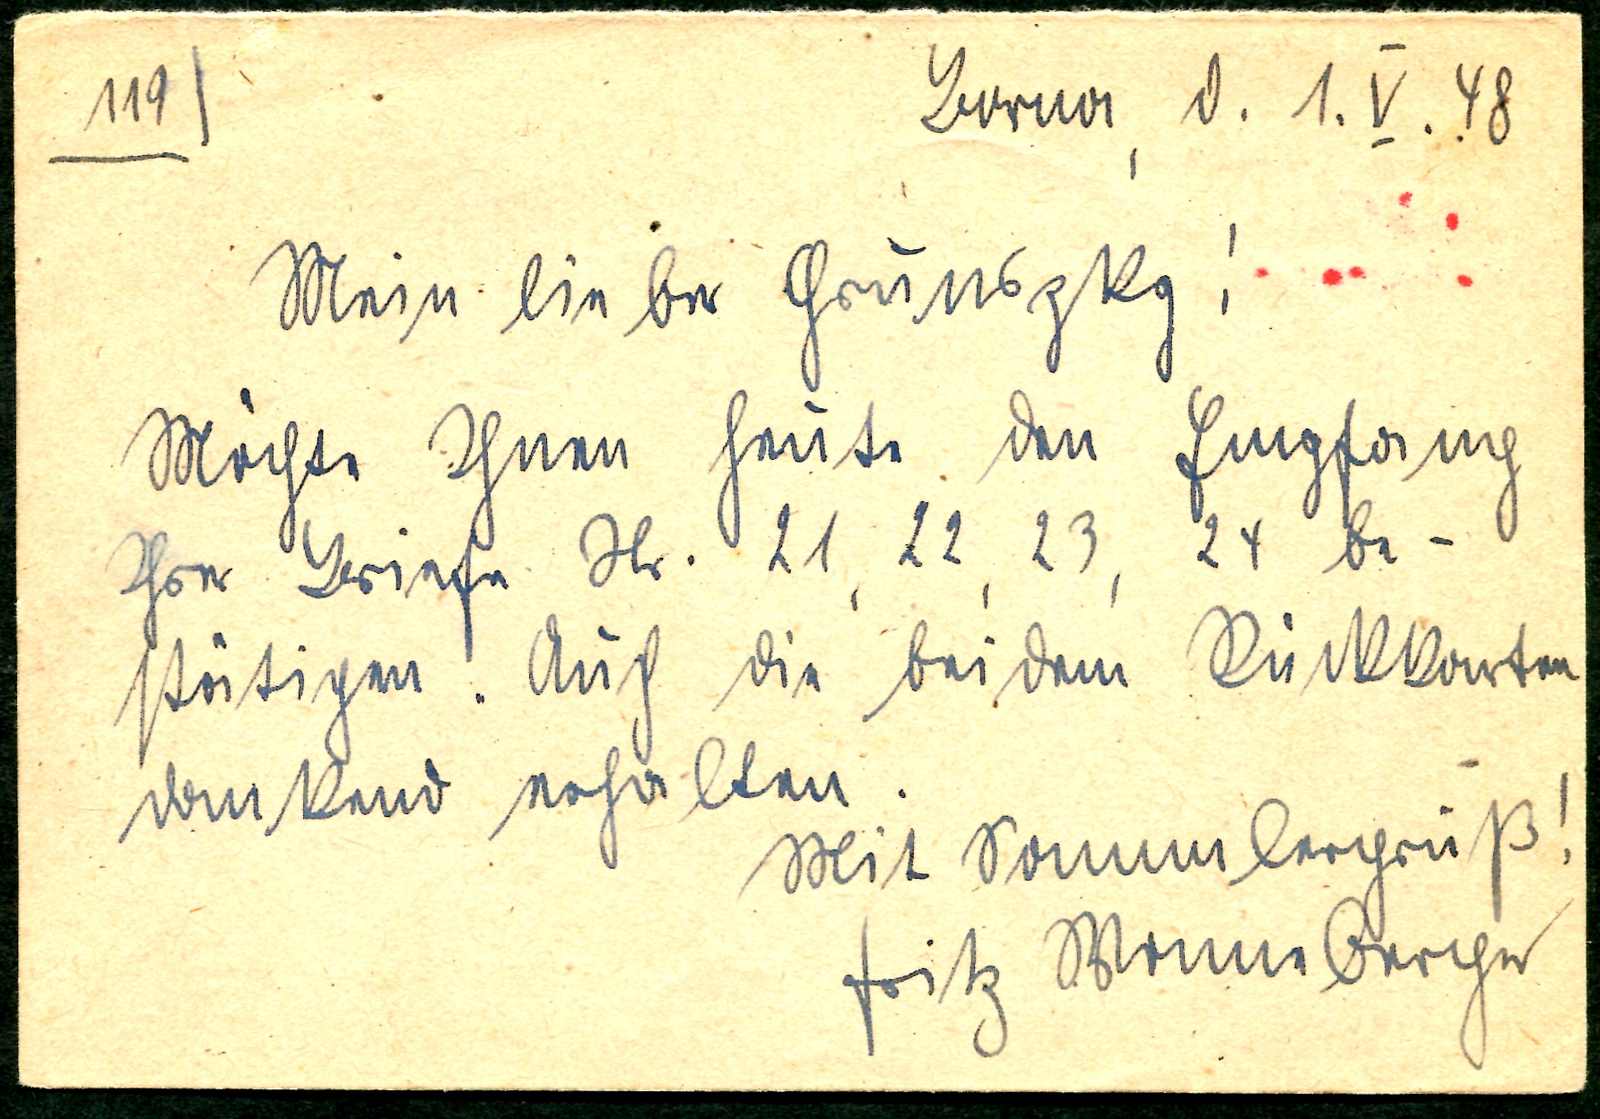 119)
Borna, d. 1. V. 48
Mein lieber Grünszky!
Möchte Ihnen heute den Empfang
Ihrer Briefe Nr. 21, 22, 23, 24 be-
stätigen. Auch die beiden Rückkarten
dankend erhalten.
Mit Sammlergruß!
Fritz Wonneberger